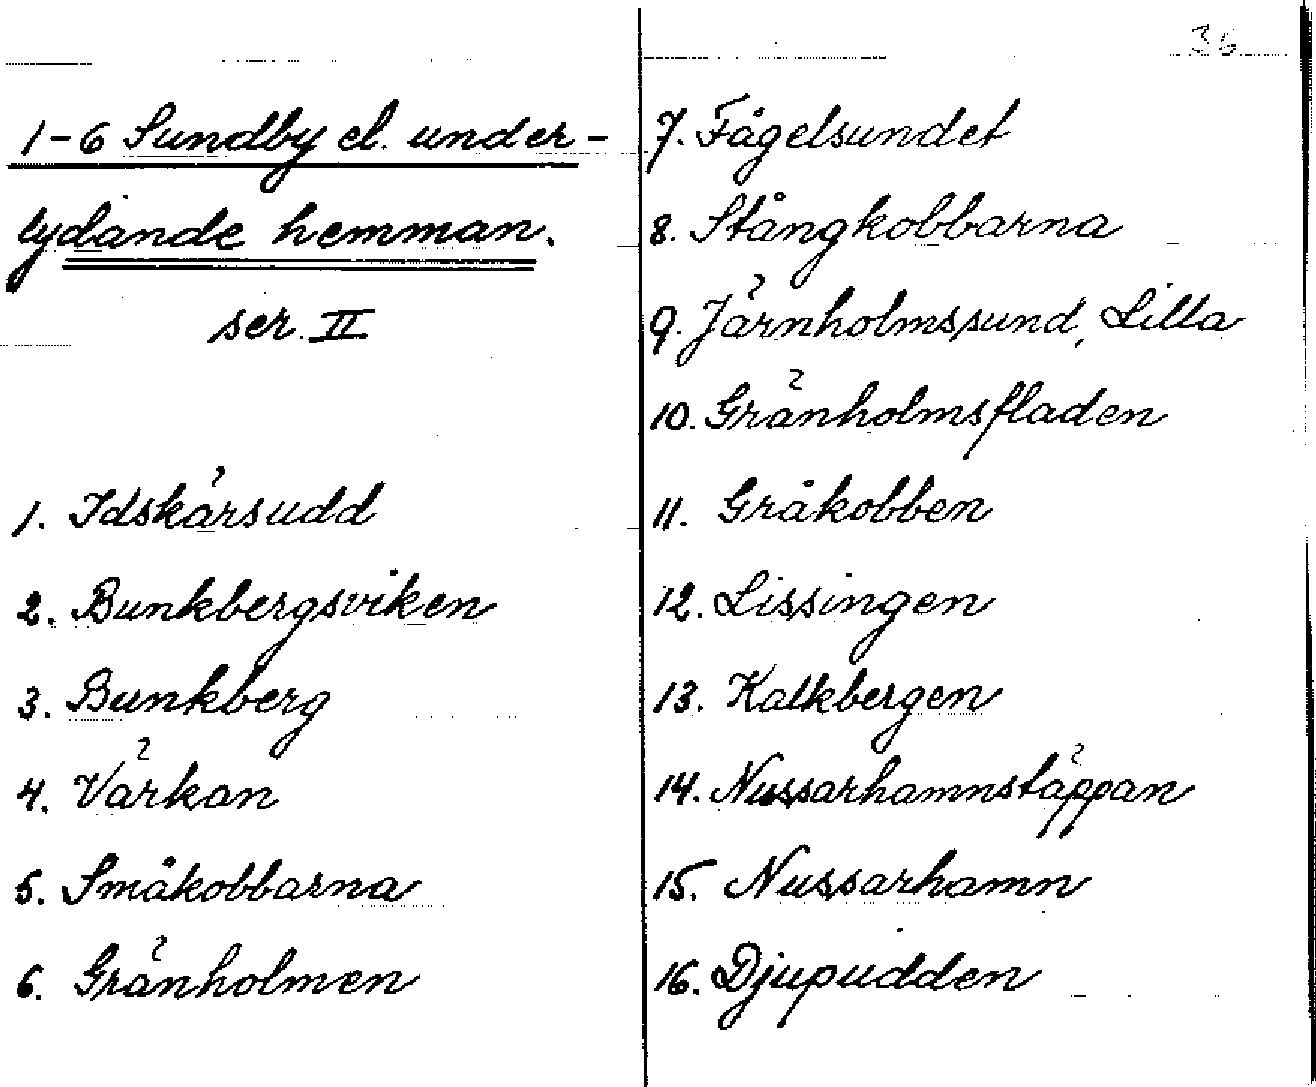 1-6 Sundby el. under-
lydande hemman.
ser. II
1. Idskärsudd
2. Bunkbergsviken
3. Bunkberg
4. Värkan
5. Småkobbarna
6. Gränholmen
35
7. Fågelsundet
8. Stångkobbarna
9. Järnholmssund, Lilla
10. Gränholmsfladen
11. Gråkobben
12. Lissingen
13. Kalkbergen
14. Nussarhamnstäppan
15. Nussarhamn
16. Djupudden